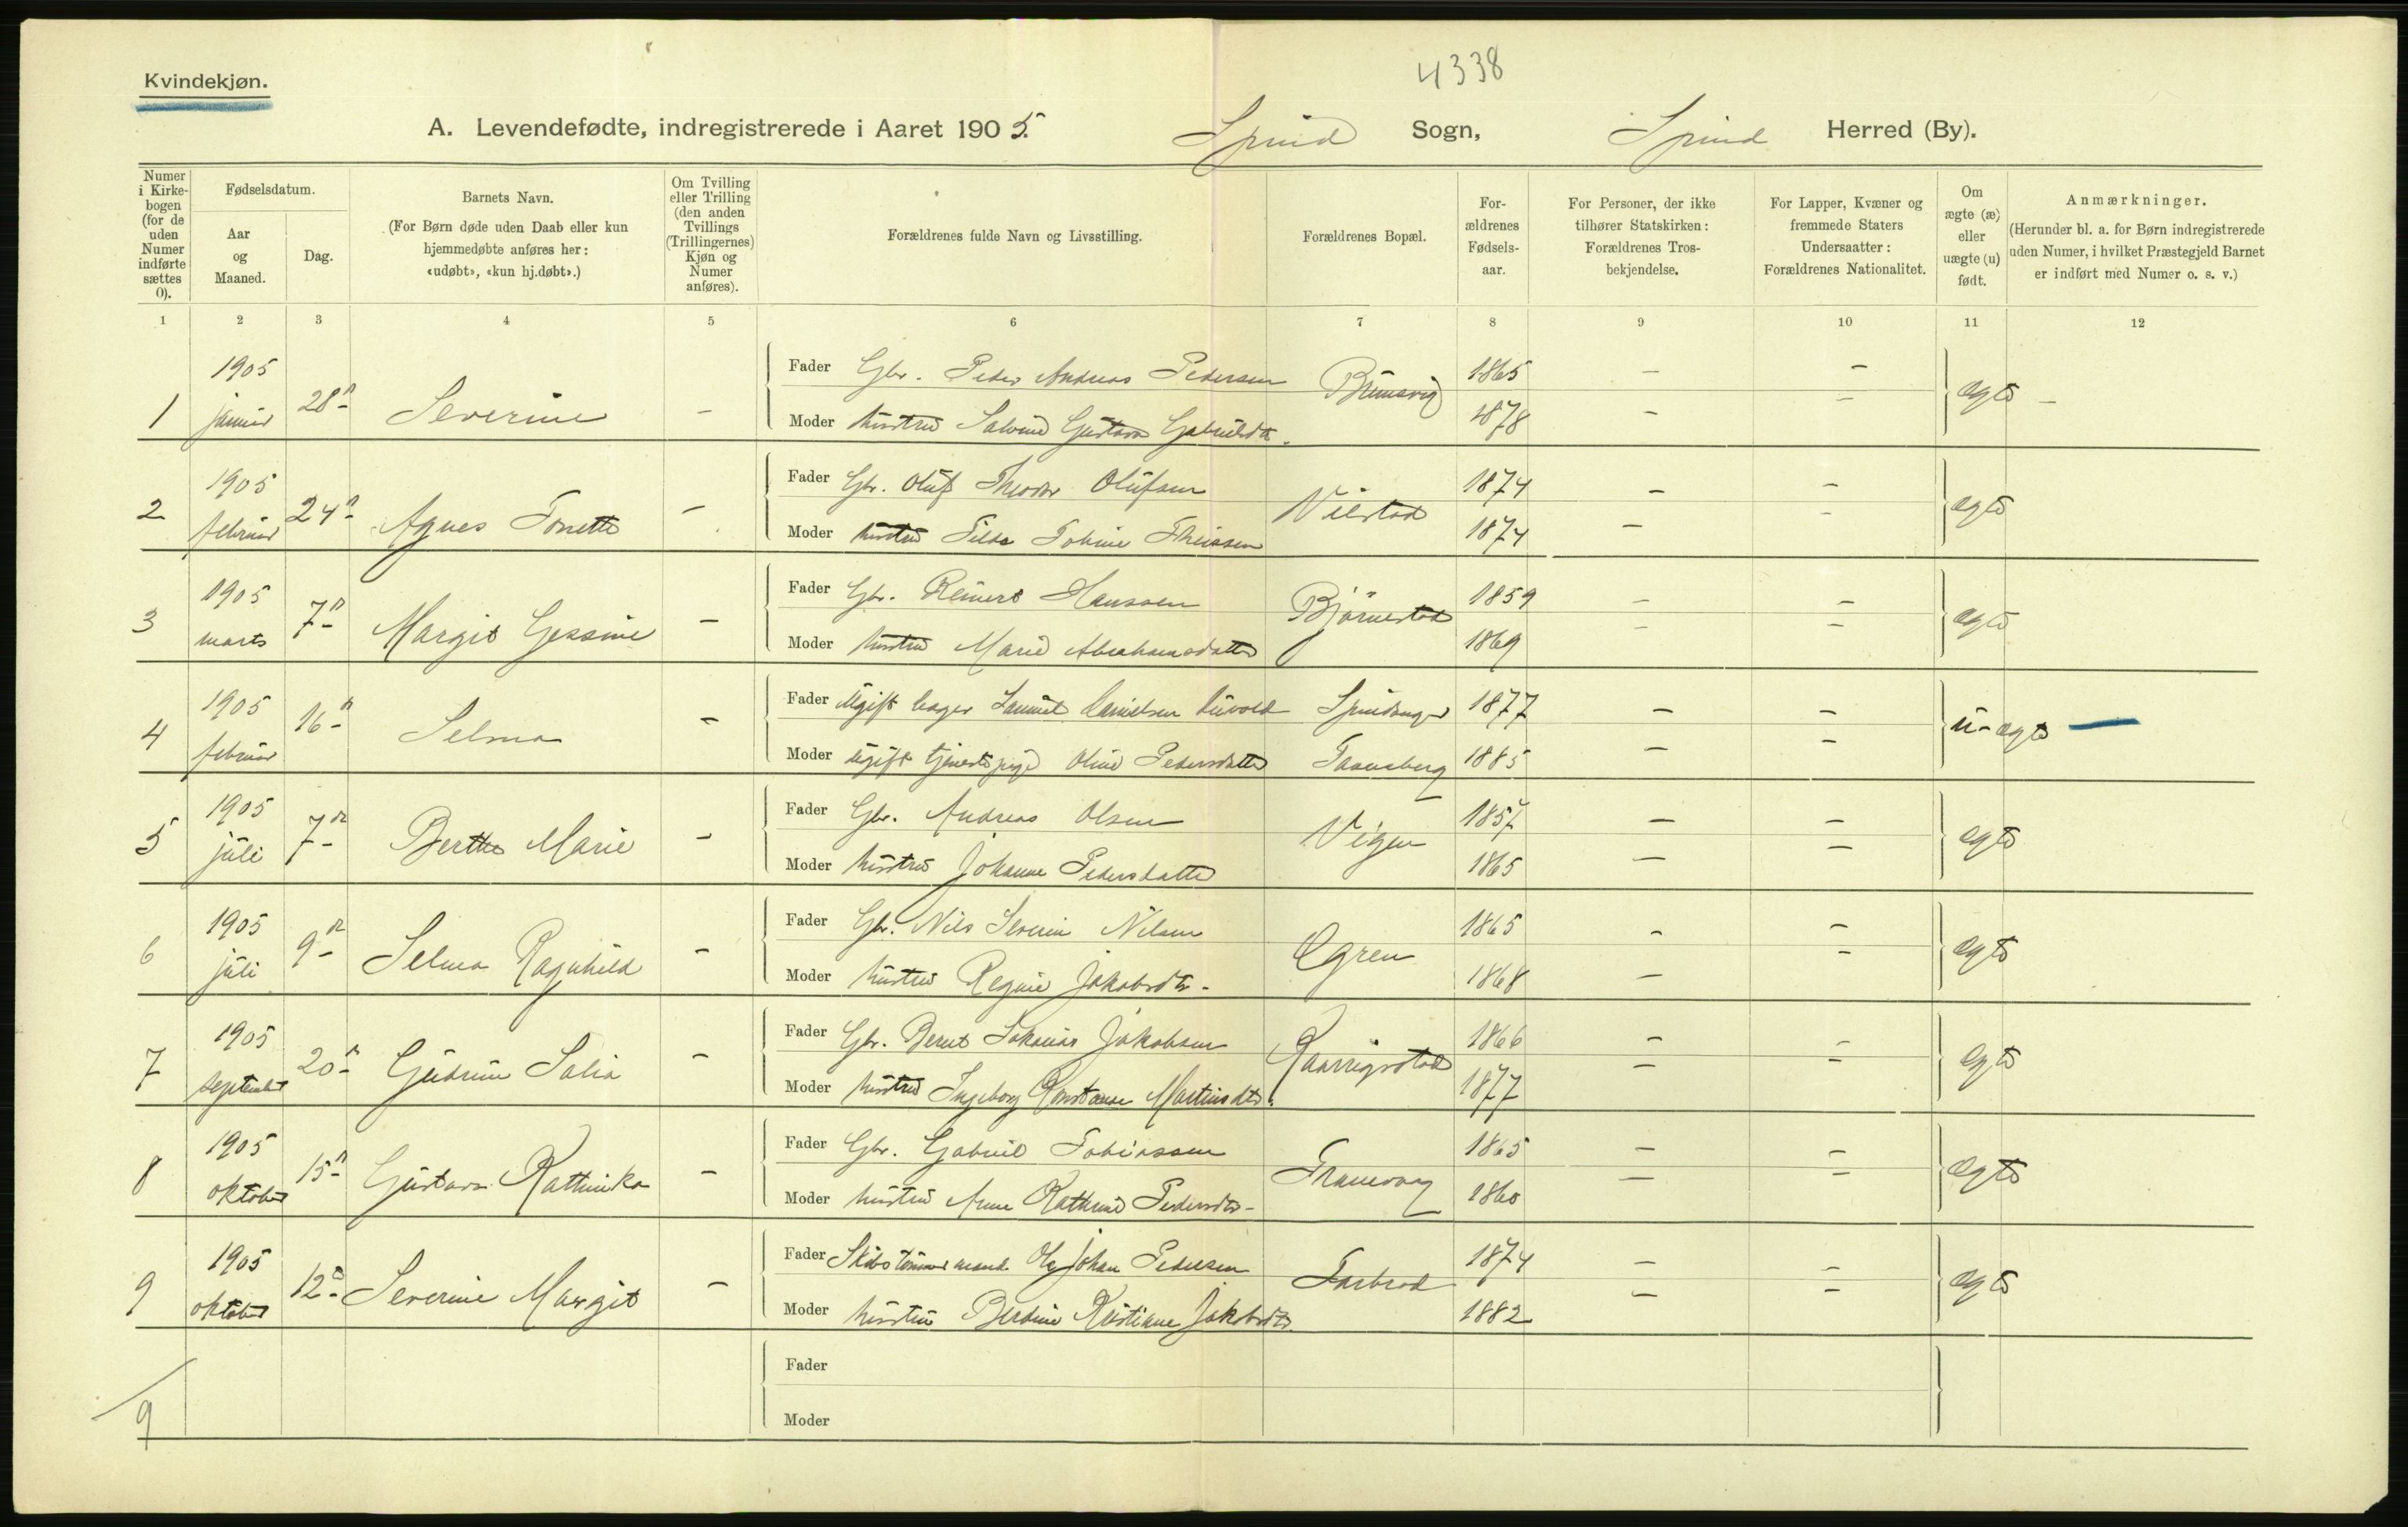 4338
Kvindekjøn.
A. Levendefødte, indregistrerede i Aaret 1905. Spind Sogn, Spind Herred (By).
Numer i Kirkebogen (for de uden Numer indførte sættes 0).
Fødselsdatum.
Aar og Maaned.
Dag.
Barnets Navn.
(For Børn døde uden Daab eller kun hjemmedøbte anføres her: «udøbt», «kun hj.døbt».)
Om Tvilling eller Trilling (den anden Tvillings (Trillingernes) Kjøn og Numer anføres).
Forældrenes fulde Navn og Livsstilling.
Forældrenes Bopæl.
For-ældrenes Fødsels-aar.
For Personer, der ikke tilhører Statskirken: Forældrenes Tros-bekjendelse.
For Lapper, Kvæner og fremmede Staters Undersaatter: Forældrenes Nationalitet.
Om ægte (æ) eller uægte (u) født.
Anmærkninger.
(Herunder bl. a. for Børn indregistrerede uden Numer, i hvilket Præstegjeld Barnet er indført med Numer o. s. v.)
1 2 3 4 5 6 7 8 9 10 11 12
1 1905 januar 28n Severine - Fader Gbr. Peder Andreas Pedersen 1865 - -
Moder hustru Gustava Gabrielsdtr. 1878 - - ægte -
2 1905 februar 24n Agnes Tonette - Fader Gbr. Oluf Theodor Olufsen 1874 - -
Moder hustru Tilda Tobine 1874 - - ægte
3 1905 marts 7n Margit Gessine - Fader Gbr. Reinert Hanssen Bjørnestad 1859 - -
Moder hustru Marie Abrahamsdatter 1869 - - ægte
4 1905 februar 16n Selma - Fader Ugift Samuel Danielsen 1877 - -
Moder ugift tjenestepige Oline Pedersdatter 1885 - - u-ægte -
5 1905 juli 7n Berthe Marie - Fader Gbr. Andreas Olsen Vigen 1857 - -
Moder hustru Johanne Pedersdatter 1865 - - ægte
6 1905 juli 9n Selma Ragnhild - Fader Gbr. Nils Severin Nilsen 1865 - -
Moder hustru Regine Jakobsdtr. Øgren 1868 - - ægte
7 1905 september 20n Gudrun Salia - Fader Gbr. Bernt Jakobsen 1866 - -
Moder hustru Ingeborg Konstanse Martinsdtr. 1877 - - ægte
8 1905 oktober 15n Gustava Kathinka - Fader Gbr. Gabriel Tobiassen 1865 - -
Moder hustru Anne Kathrine Pedersdtr. 1860 - - ægte
9 1905 oktober 12n Severine Margit - Fader Skibstømmermand Ole Johan Pedersen 1874 - -
Moder hustru Berdine Kristiane Jakobsdtr. 1882 - - ægte
Fader
9
Moder